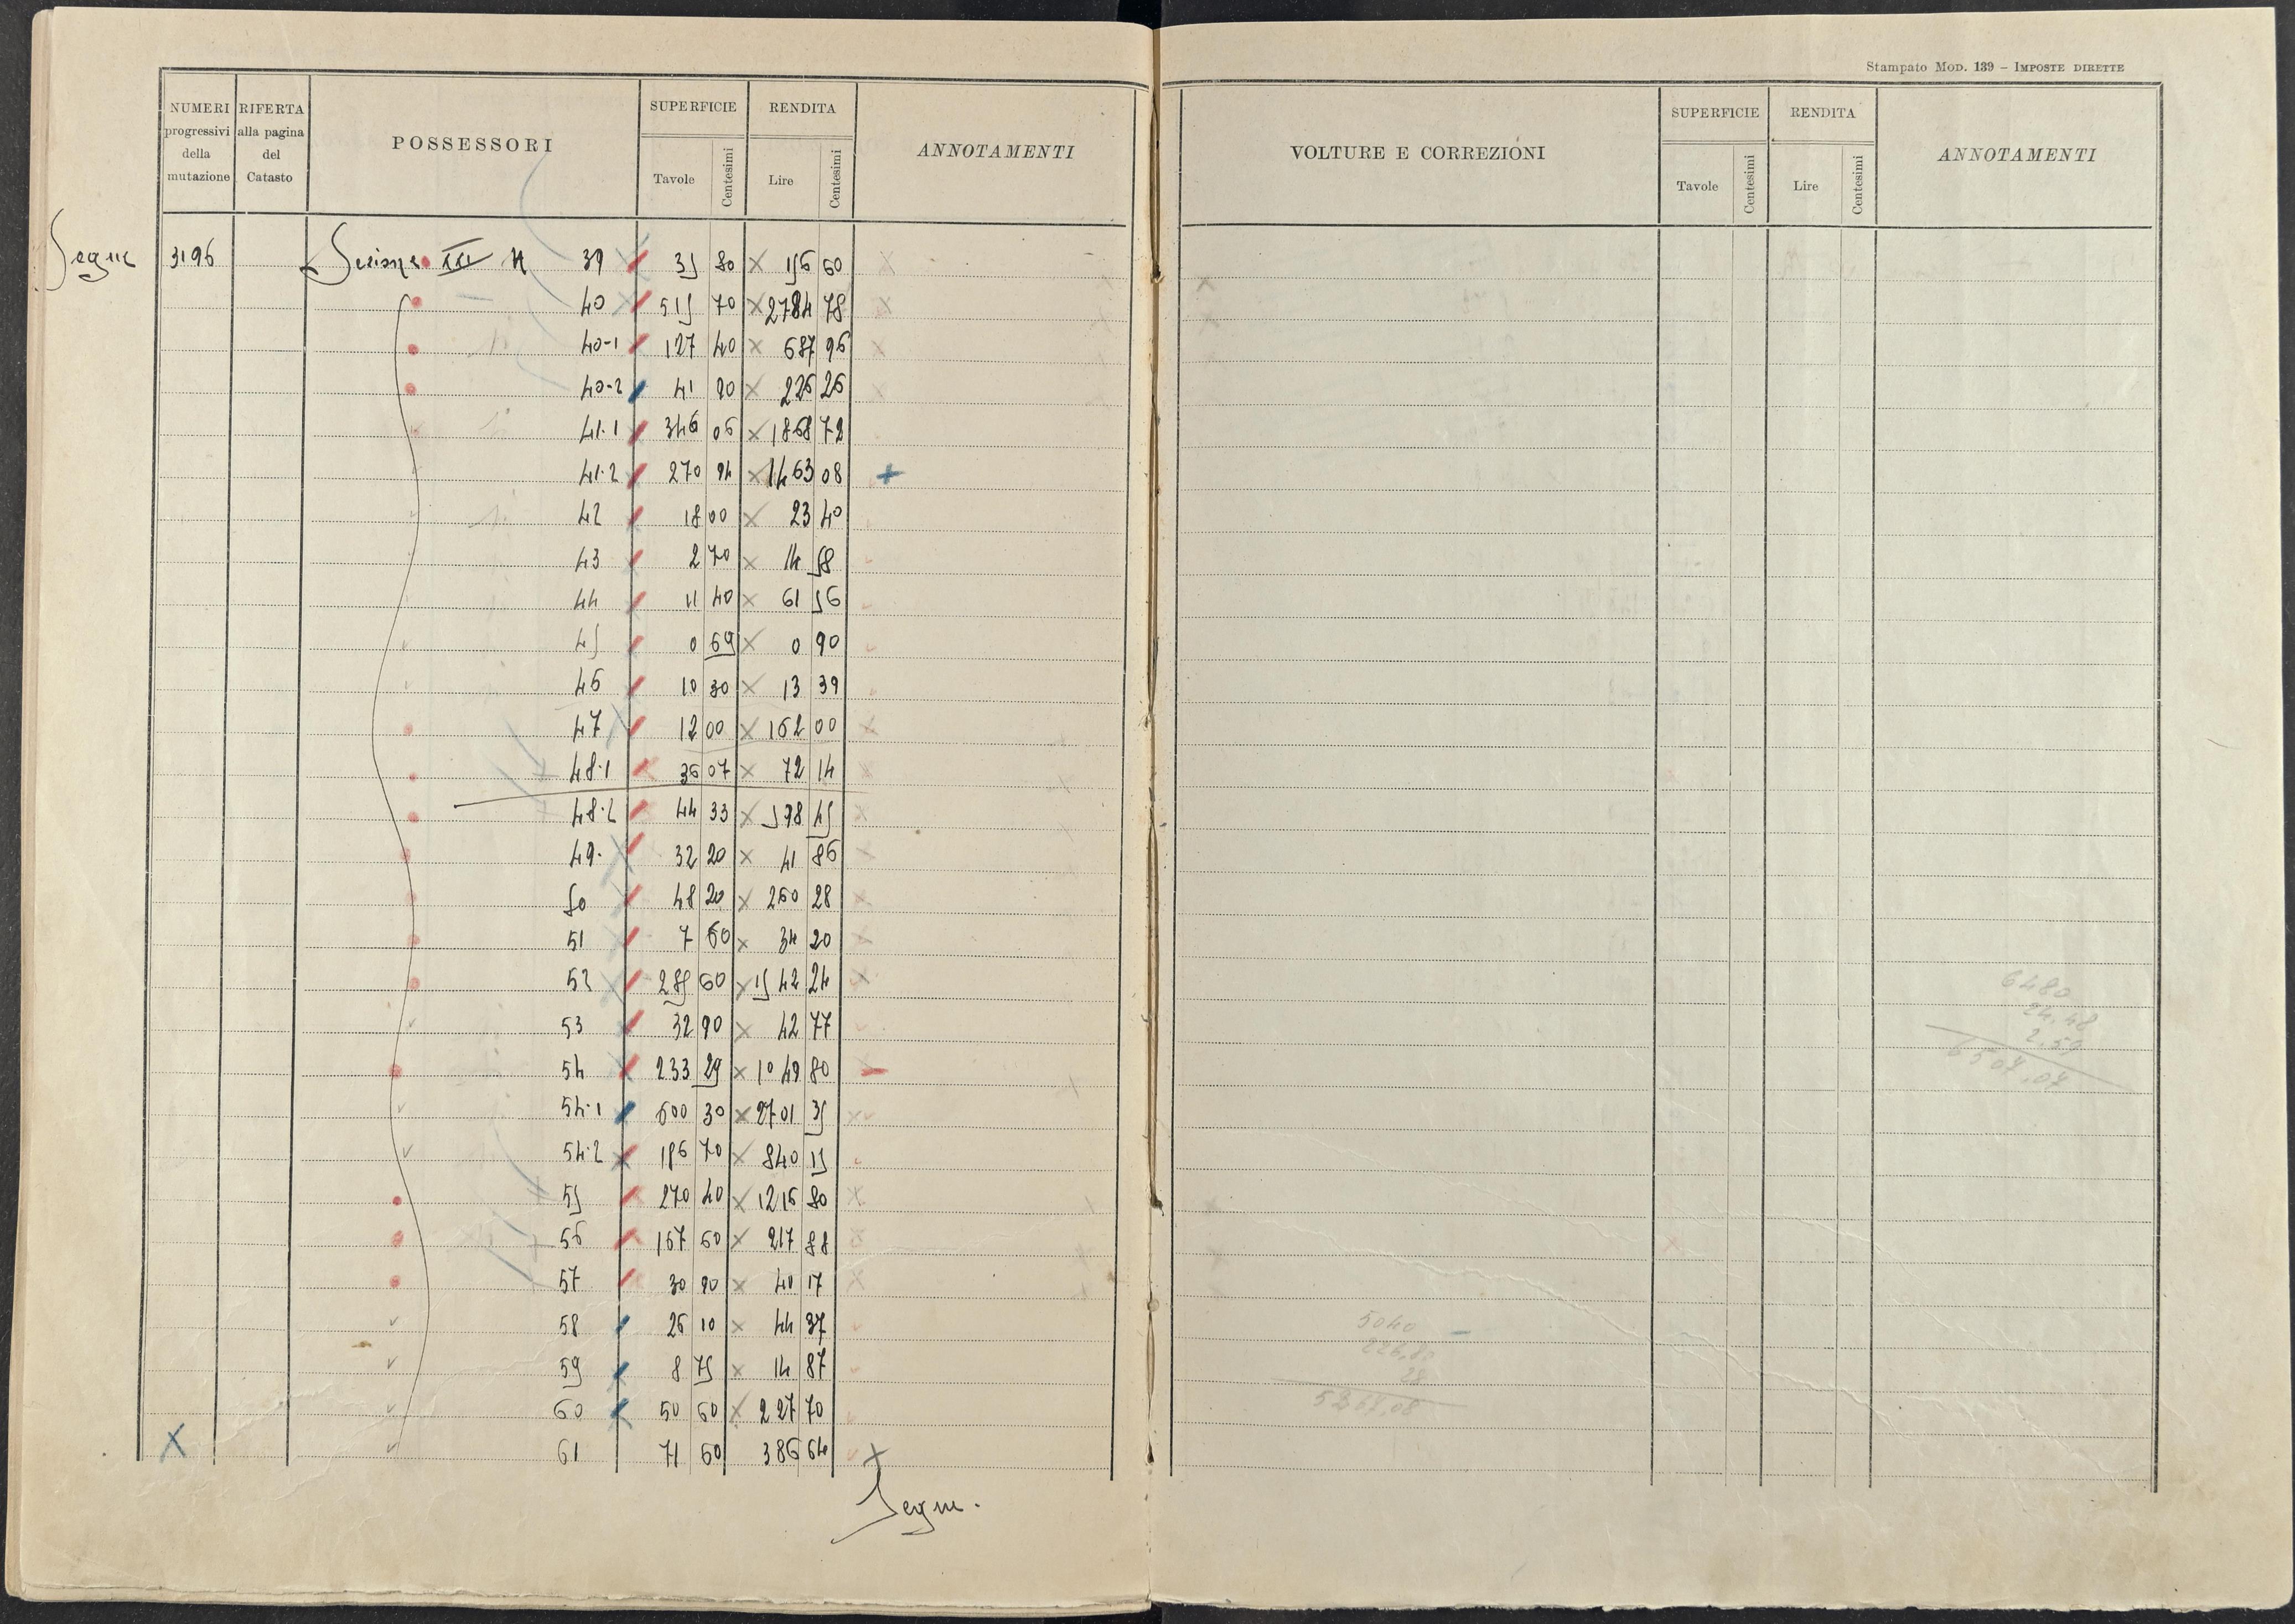 Stampato Mod. 139 – Imposte dirette
NUMERI progressivi della mutazione
RIFERTA alla pagina del Catasto
POSSESSORI
SUPERFICIE
Tavole
Centesimi
RENDITA
Lire
Centesimi
ANNOTAMENTI
VOLTURE E CORREZIONI
SUPERFICIE
Tavole
Centesimi
RENDITA
Lire
Centesimi
ANNOTAMENTI
Segue 3196 Sezione XXI N 39 35 80 156 60
40 515 70 2784 78
40-1 127 40 687 96
40-2 41 90 226 26
41.1 346 06 1868 72
41.2 270 94 1463 08
42 18 00 23 40
43 2 70 14 58
44 11 40 61 56
45 0 69 0 90
46 10 30 13 39
47 12 00 162 00
48.1 36 07 72 14
48.2 44 33 598 45
49. 32 20 41 86
50 48 20 260 28
51 7 60 34 20
52 285 60 1542 24
53 32 90 42 77
54 233 29 1049 80
54.1 600 30 2701 35
54.2 186 70 840 15
55 270 40 1216 80
56 167 60 217 88
57 30 90 40 17
58 26 10 44 37
59 8 75 14 87
60 50 60 227 70
61 71 60 386 64
Segue.
6480
24.48
2.59
6507.07
5040
28